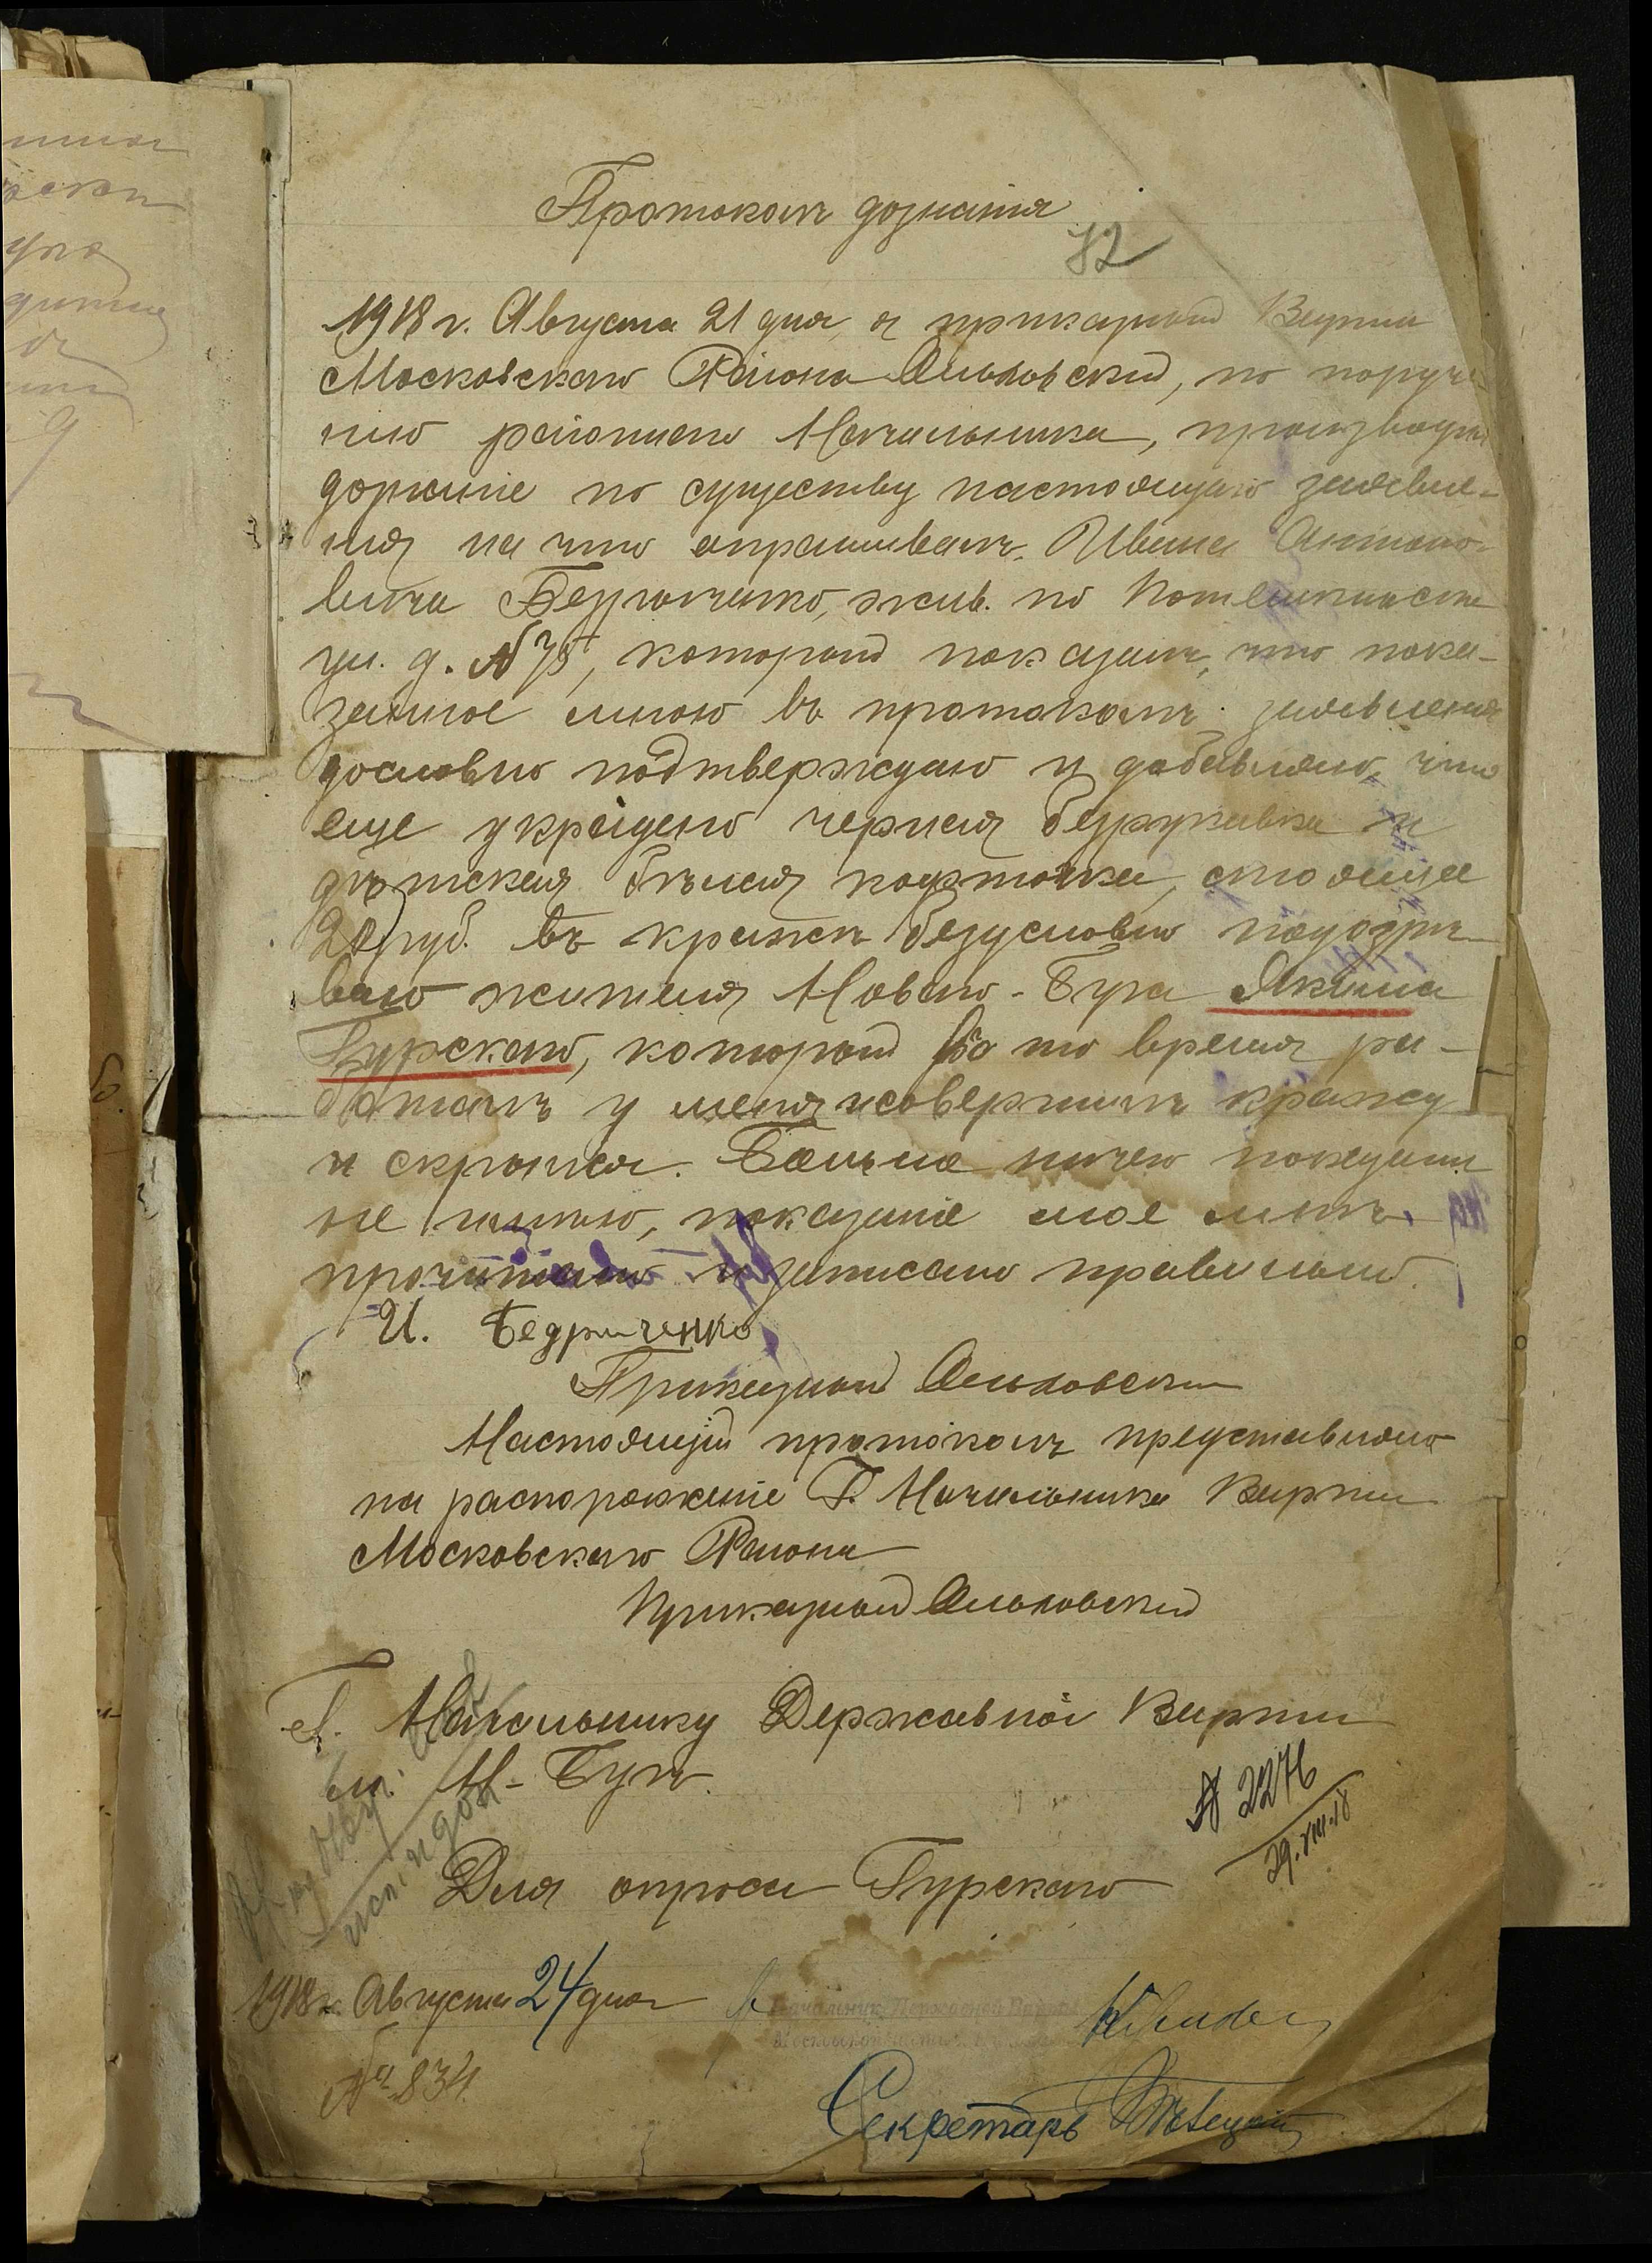 Протоколъ дознанія
72
1918 г. Августа 21 дня, я приказный Варты
Московскаго Района Ольховский, по поруче-
нію районнаго Начальника, производилъ
дознаніе по существу настоящаго заявле-
нія на что опрашивалъ Ивана Антоно-
вича Бедриченко, жив. по Потемкинской
ул. д. №75, который показалъ, что пока-
занное мною въ протоколѣ заявленія
дословно подтверждаю и добавляю, что
еще украдено черная безрукавка и
дѣтская бѣлая кофточка, стоящая
20 руб. Въ кражѣ безусловно подозрѣ-
ваю жителя Новаго-Буга Якима
Гурскаго, который въ то время ра-
боталъ у меня и совершилъ кражу
и скрылся. Больше ничего показать
не имѣю, показаніе мое мнѣ
прочитано и записано правильно.
И. Бедриченко
Приказный Ольховский
Настоящій протоколъ представляю
на распоряженіе Г. Начальника Варты
Московскаго Района
Приказный Ольховский
Г. Начальнику Державной Варты
въ Н-Бугъ.
№ 2276
29.VIII.18
Для опроса Гурскаго
1918 г. Августа 24 дня
Начальник Державной Варты
№ 834
Секретарь